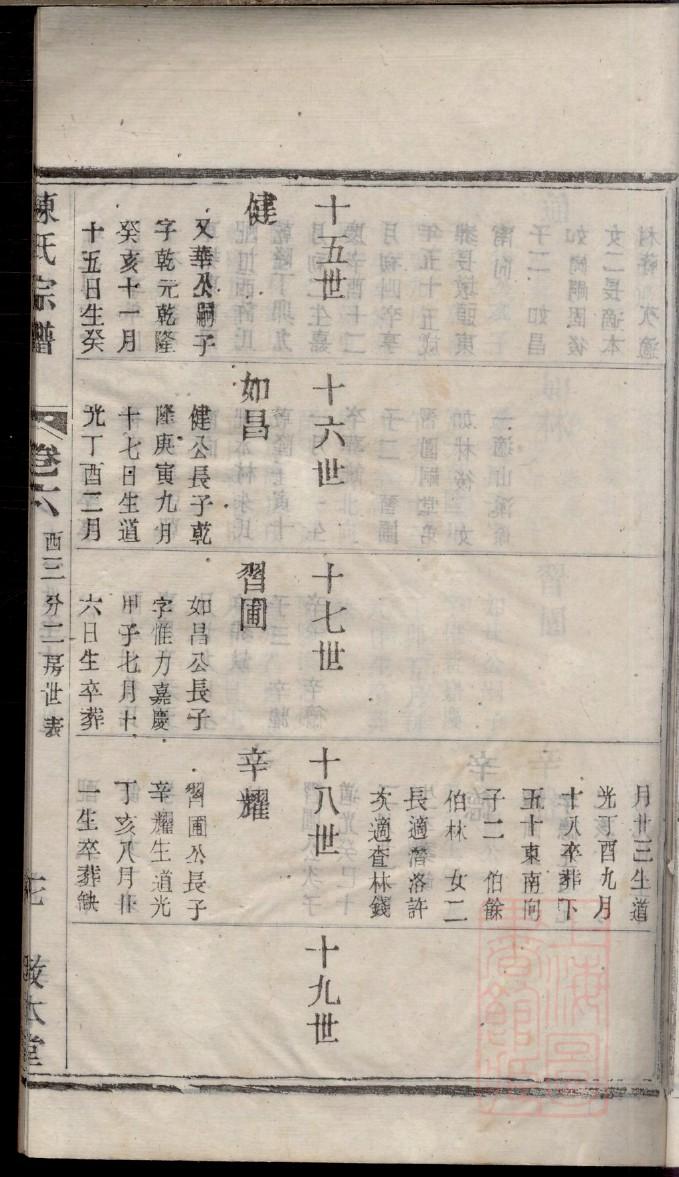 月廿三生道
光丁酉九月
十八卒葬下
五十東南向
子二 伯餘
伯林 女二
長適潛洛許
次適查林錢
十五世
健
又華公嗣子
字乾元乾隆
癸亥十一月
十五日生癸
十六世
如昌
健公長子乾
隆庚寅九月
十七日生道
光丁酉二月
十七世
習圃
如昌公長子
字惟力嘉慶
甲子七月十
六日生卒葬
十八世
辛耀
習圃公長子
辛耀生道光
丁亥八月廿
一生卒葬缺
十九世
陳氏宗譜
卷六
酉三分二房世表
敦本堂